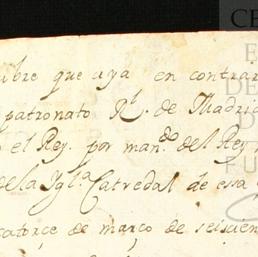 ubre que aya en contrar
patronato Rl. de Madrid
el Rey. por mando. del Rey
de la Iglª Catredal de essa
catorce de março de seiscien
CE
E
DE
DE
FU